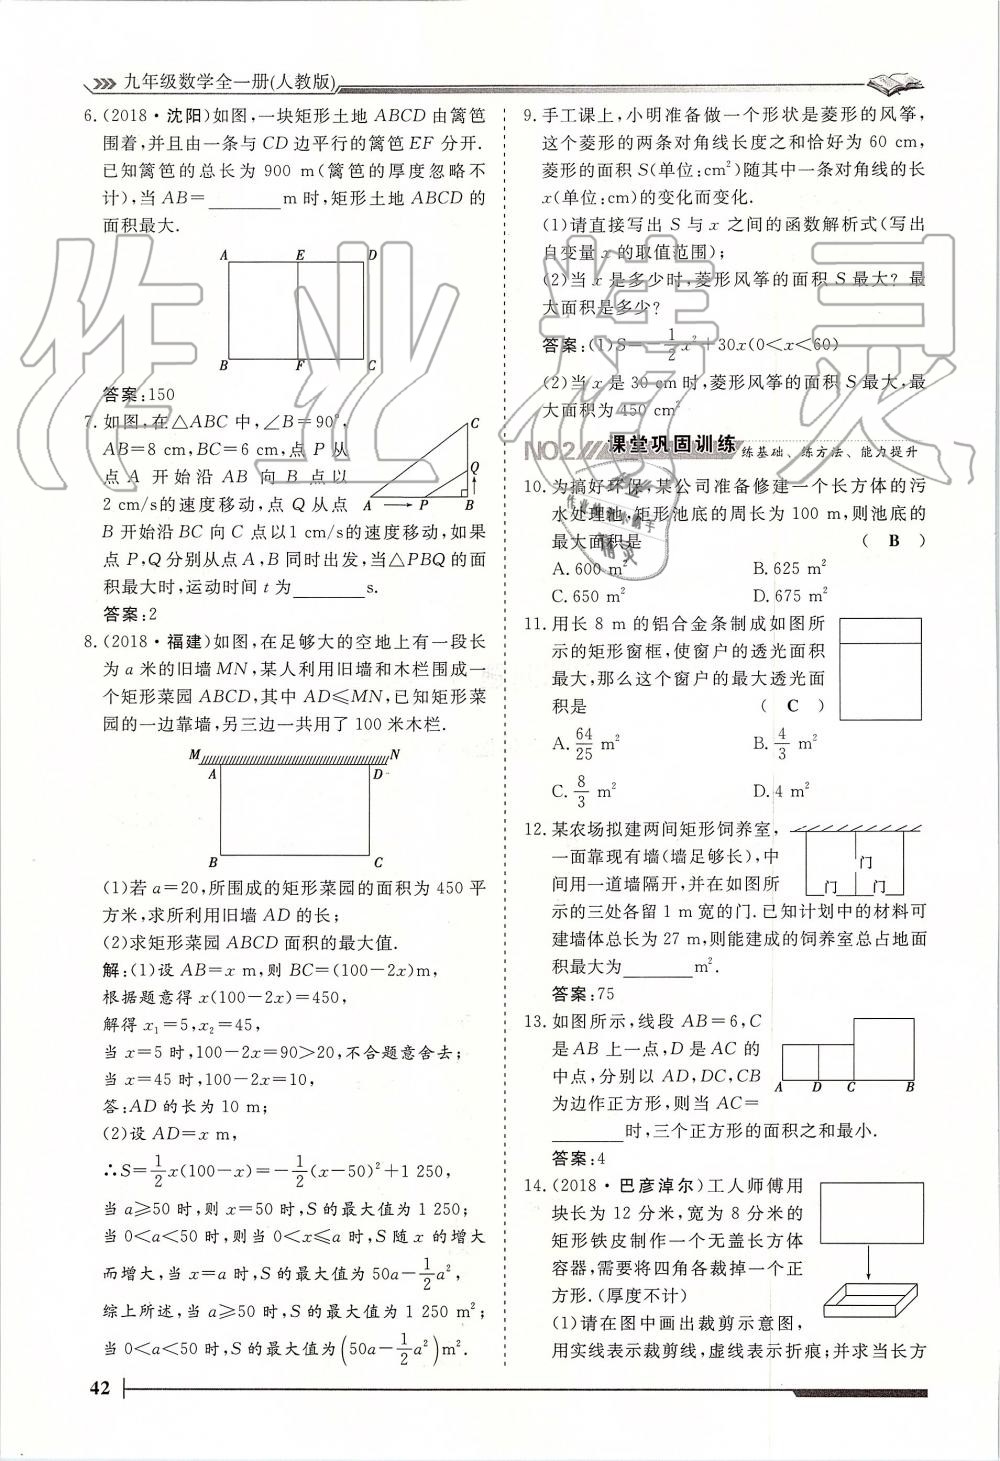 九年级数学全一册(人教版)
6.(2018·沈阳)如图,一块矩形土地 ABCD 由篱笆
围着,并且由一条与 CD 边平行的篱笆 EF 分开.
已知篱笆的总长为 900 m(篱笆的厚度忽略不
计),当 AB=________m 时,矩形土地 ABCD 的
面积最大.
A E D
B F C
答案:150
7.如图,在△ABC 中,∠B=90°,
AB=8 cm,BC=6 cm,点 P 从
点 A 开始沿 AB 向 B 点以
2 cm/s的速度移动,点 Q 从点
B 开始沿 BC 向 C 点以1 cm/s的速度移动,如果
点 P,Q 分别从点 A,B 同时出发,当△PBQ 的面
积最大时,运动时间 t 为________s.
C
Q
A P B
答案:2
8.(2018·福建)如图,在足够大的空地上有一段长
为 a 米的旧墙 MN,某人利用旧墙和木栏围成一
个矩形菜园 ABCD,其中 AD≤MN,已知矩形菜
园的一边靠墙,另三边一共用了 100 米木栏.
M N
A D
B C
(1)若 a=20,所围成的矩形菜园的面积为 450 平
方米,求所利用旧墙 AD 的长;
(2)求矩形菜园 ABCD 面积的最大值.
解:(1)设 AB=x m,则 BC=(100-2x)m,
根据题意得 x(100-2x)=450,
解得 x₁=5,x₂=45,
当 x=5 时,100-2x=90>20,不合题意舍去;
当 x=45 时,100-2x=10,
答:AD 的长为 10 m;
(2)设 AD=x m,
∴S=1/2x(100-x)=-1/2(x-50)²+1 250,
当 a≥50 时,则 x=50 时,S 的最大值为 1 250;
当 0<a<50 时,则当 0<x≤a 时,S 随 x 的增大
而增大,当 x=a 时,S 的最大值为 50a-1/2a²,
综上所述,当 a≥50 时,S 的最大值为 1 250 m²;
当 0<a<50 时,S 的最大值为(50a-1/2a²)m².
42
9.手工课上,小明准备做一个形状是菱形的风筝,
这个菱形的两条对角线长度之和恰好为 60 cm,
菱形的面积 S(单位:cm²)随其中一条对角线的长
x(单位:cm)的变化而变化.
(1)请直接写出 S 与 x 之间的函数解析式(写出
自变量 x 的取值范围);
(2)当 x 是多少时,菱形风筝的面积 S 最大?最
大面积是多少?
答案:(1)S=-1/2x²+30x(0<x<60)
(2)当 x 是 30 cm 时,菱形风筝的面积 S 最大,最
大面积为 450 cm²
NO2 课堂巩固训练 练基础、练方法、能力提升
10.为搞好环保,某公司准备修建一个长方体的污
水处理池,矩形池底的周长为 100 m,则池底的
最大面积是 ( B )
A.600 m² B.625 m²
C.650 m² D.675 m²
11.用长 8 m 的铝合金条制成如图所
示的矩形窗框,使窗户的透光面积
最大,那么这个窗户的最大透光面
积是 ( C )
A.64/25 m² B.4/3 m²
C.8/3 m² D.4 m²
12.某农场拟建两间矩形饲养室,
一面靠现有墙(墙足够长),中
间用一道墙隔开,并在如图所
示的三处各留 1 m 宽的门.已知计划中的材料可
建墙体总长为 27 m,则能建成的饲养室总占地面
积最大为________m².
门
门 门
答案:75
13.如图所示,线段 AB=6,C
是 AB 上一点,D 是 AC 的
中点,分别以 AD,DC,CB
为边作正方形,则当 AC=
________时,三个正方形的面积之和最小.
A D C B
答案:4
14.(2018·巴彦淖尔)工人师傅用
一块长为 12 分米,宽为 8 分米的
矩形铁皮制作一个无盖长方体
容器,需要将四角各裁掉一个正
方形.(厚度不计)
(1)请在图中画出裁剪示意图,
用实线表示裁剪线,虚线表示折痕;并求当长方
作业精灵